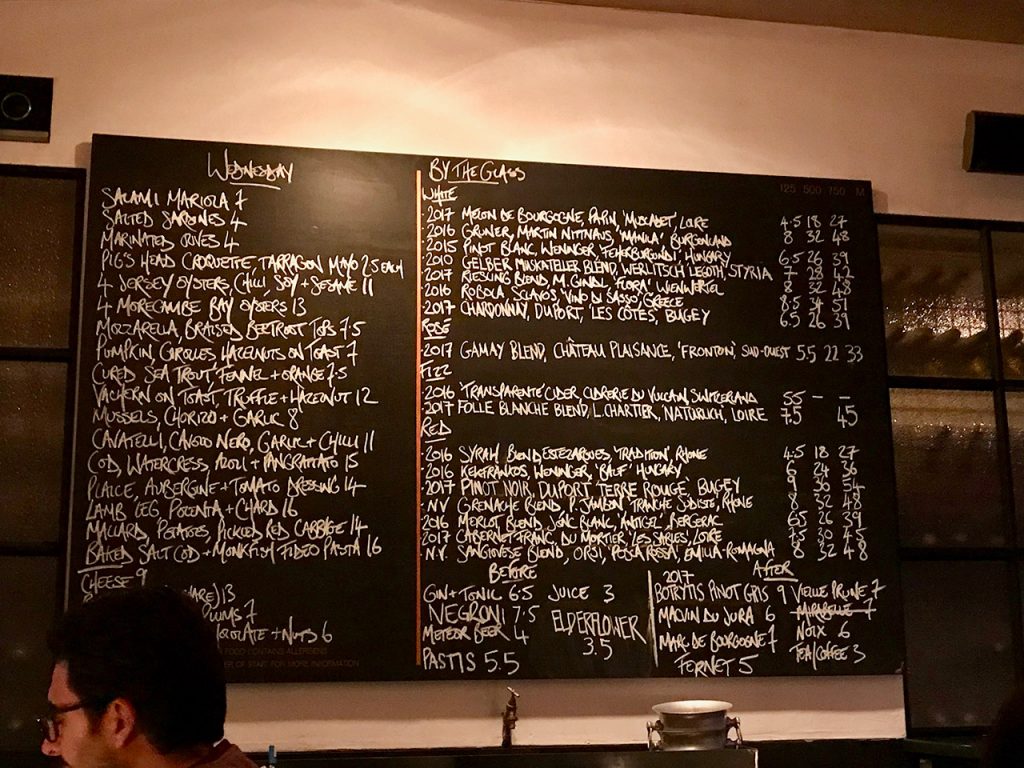 WEDNESDAY
SALAMI MARIOLA 7
SALTED SARDINES 4
MARINATED OLIVES 4
PIGS HEAD CROQUETTE, TARRAGON MAYO 2.5 EACH
4 JERSEY OYSTERS, CHILLI, SOY + SESAME 11
4 MORECAMBE BAY OYSTERS 13
MOZZARELLA, BRAISED BEETROOT TOPS 7.5
PUMPKIN, GIROLLES, HAZELNUTS ON TOAST 7
CURED SEA TROUT, FENNEL + ORANGE 7.5
VACHERIN ON TOAST, TRUFFLE + HAZELNUT 12
MUSSELS, CHORIZO + GARLIC 8
CAVATELLI, CAVOLO NERO, GARLIC + CHILLI 11
COD, WATERCRESS, AIOLI + PANGRATTATO 15
PLAICE, AUBERGINE + TOMATO DRESSING 14
LAMB LEG POLENTA + CHARD 16
MALLARD, POTATOES, PICKLED RED CABBAGE 14
BAKED SALT COD + MONKFISH FIDEO PASTA 16
CHEESE 9
ARE) 13
PLUMS 7
COLATE + NUTS 6
FOOD CONTAINS ALLERGENS
OF STAFF FOR MORE INFORMATION
BY THE GLASS
125 500 750 M
WHITE
2017 MELON DE BOURGOGNE, PAPIN, 'MUSCADET', LOIRE 4.5 18 27
2016 GRUNER, MARTIN NITTNAUS, BURGENLAND 8 32 48
2015 PINOT BLANC, WENINGER, 'FEHERBURGUNDI', HUNGARY 6.5 26 39
2015 GELBER MUSKATELLER BLEND, WERLITSCH LEGOTH, STYRIA 7 28 42
2017 RIESLING BLEND, M. GINDL, 'FLORA', WEINVIERTEL 8 32 48
2016 ROBOLA SCLAVOS, 'VINO DI SASSO', GREECE 8.5 34 51
2017 CHARDONNAY, DUPORT, 'LES CÔTES', BUGEY 6.5 26 39
ROSÉ
2017 GAMAY BLEND, CHÂTEAU PLAISANCE, 'FRONTON', SUD-OUEST 5.5 22 33
FIZZ
2016 'TRANSPARENTE' CIDER, CIDRERIE DU VULCAIN, SWITZERLAND 5.5 – –
2017 FOLLE BLANCHE BLEND, L. CHARTIER, 'NATURLICH', LOIRE 7.5 45
RED
2016 SYRAH BLEND ESTEZARGUES, 'TRADITION', RHONE 4.5 18 27
2016 KEKFRANKOS, WENINGER, 'BALF' HUNGARY 6 24 36
2017 PINOT NOIR, DUPORT, TERRE ROUGE, BUGEY 9 36 54
NV GRENACHE BLEND, P. JAMBON, 'TRANCHE SUDISTE', RHONE 8 32 48
2016 MERLOT BLEND, JONC BLANC, BERGERAC 6.5 26 39
2017 CABERNET FRANC, DU MORTIER 'LES SABLES', LOIRE 45
N.V. SANGIOVESE BLEND, ORSI, 'POSCA ROSSA', EMILIA-ROMAGNA 8 32 48
BEFORE
GIN + TONIC 6.5
NEGRONI 7.5
METEOR BEER 4
PASTIS 5.5
JUICE 3
ELDERFLOWER
3.5
AFTER
2017
BOTRYTIS PINOT GRIS 9
MACVIN DU JURA 6
MARC DE BOURGOGNE 7
FERNET 5
VIELLE PRUNE 7
MIRABELLE 7
NOIX 6
TEA/COFFEE 3